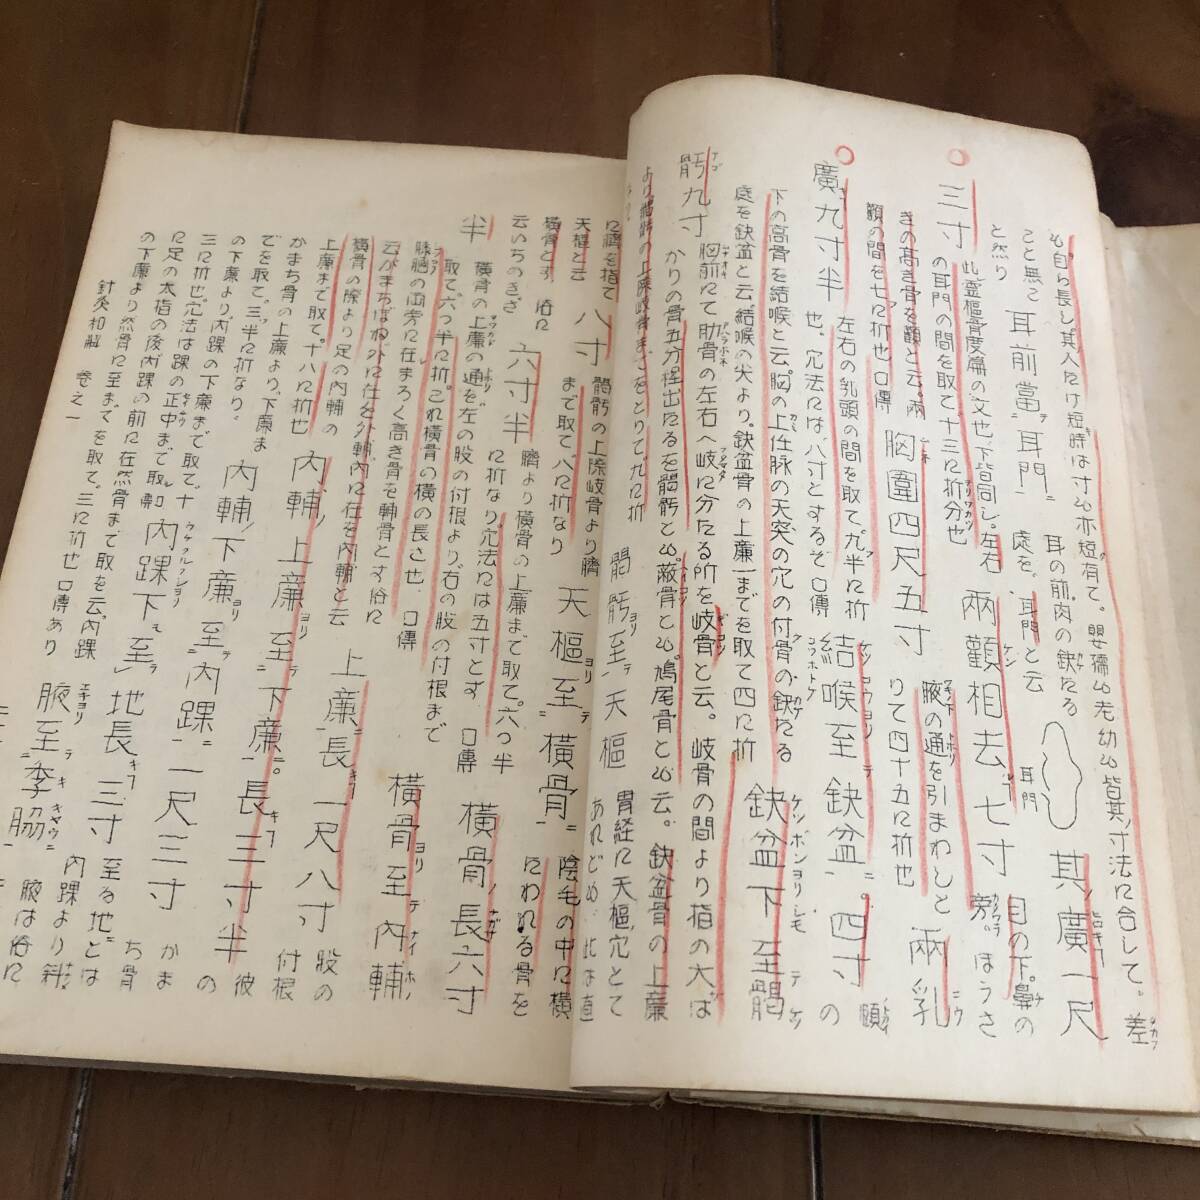 も自ら長し其人たけ短時は寸も亦短有て。嬰孺も老幼も皆其寸法に合して。差
こと無し 耳前當耳門 耳の前肉の缺たる處を、耳門と云 耳門 其廣一尺
と然り
三寸 此霊枢骨度篇の文也、下皆同し。左右の耳門の間を取て、十三に折分也 兩顴相去七寸 目の下。鼻の旁。ほうさ
きの高き骨を顴と云。兩顴の間を七に折也。口傳 胸圍四尺五寸 腋の通を引まわしとりて四十五に折也 兩乳
廣九寸半 左右の乳頭の間を取て。九半に折也、穴法には、八寸とするぞ 口傳 結喉至缺盆四寸 頤の
下の高骨を結喉と云。胸の上任脉の天突の穴の付骨の缺たる
處を缺盆と云、結喉の尖より。缺盆骨の上廉までを取て四に折 缺盆下至𩩲
骬九寸 胸前にて肋骨の左右へ岐に分たる所を岐骨と云。岐骨の間より指の大ば
かりの骨五分程出たるを𩩲骬と云。蔽骨とも。鳩尾骨とも云。缺盆骨の上廉
より𩩲骬の上際岐骨までをとりて九に折
𩩲骬至天樞 胃経に天樞、穴とてあれども 此は直
に臍を指て天樞と云 八寸 𩩲骬の上際岐骨より臍まで取て八に折なり 天樞至橫骨 陰毛の中に橫たわれる骨を
橫骨とす、俗に云いちのきざ 六寸半 臍より橫骨の上廉まで取て。六つ半に折なり、穴法には五寸とす 口傳 橫骨長六寸
半 橫骨の上廉の通を左の股の付根より。右の股の付根まで取て。六つ半に折。これ橫骨の橫の長さ也 口傳 橫骨至內輔
膝膕の両旁に在まろく高き骨を輔骨とす俗に云がまちぼね外に在を外輔、內に在を內輔と云 上廉長一尺八寸 股の付根
橫骨の際より足の內輔の上廉まで取て。十八に折也 內輔上廉至下廉長三寸半 彼の
かまち骨の上廉より、下廉までを取て。三半に折なり。 內輔下廉至內踝一尺三寸 かまち骨
の下廉より、內踝の下廉まで取て。十三に折也、穴法は踝の正中まで取 內踝下至地長三寸 至る地とは
に足の太指の後內踝の前に在然骨まで取を云、內踝より斜
の下廉より然骨に至までを取て。三に折也 口傳あり 腋至季脇 腋は俗に
針灸和解 卷之一